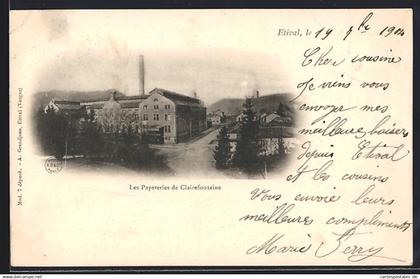 Etival, le 19 7bre 1904
Cher cousine
Je viens vous
envoyer mes
meilleurs baisers
depuis Etival
et les cousins
Vous envoie leurs
meilleures compliments
Marie Ferry
Les Papeteries de Clairefontaine
Mod. 7 déposé. - A. Grandjean, Etival (Vosges)